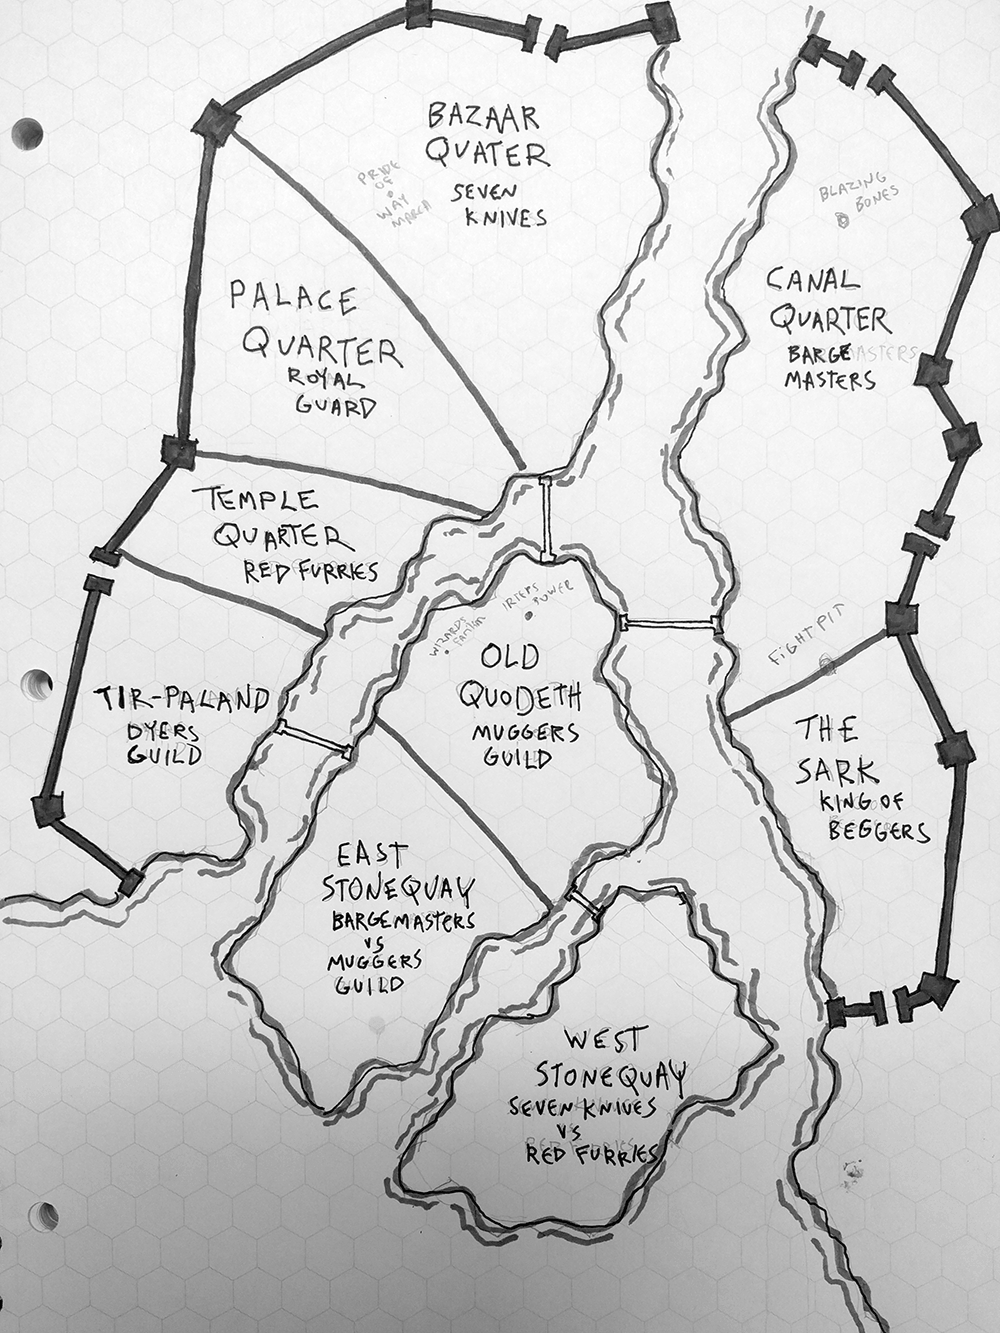 BAZAAR
QUATER
SEVEN
KNIVES
PRIDE
OF
WAY
MARCA
BLAZING
BONES
PALACE
QUARTER
ROYAL
GUARD
CANAL
QUARTER
BARGE MASTERS
MASTERS
TEMPLE
QUARTER
RED FURRIES
WIZARDS
POWER
OLD
QUODETH
MUGGERS
GUILD
FIGHT PIT
TIR-PALAND
DYERS
GUILD
THE
SARK
KING OF
BEGGERS
EAST
STONEQUAY
BARGEMASTERS
VS
MUGGERS
GUILD
WEST
STONEQUAY
SEVEN KNIVES
VS
RED FURRIES